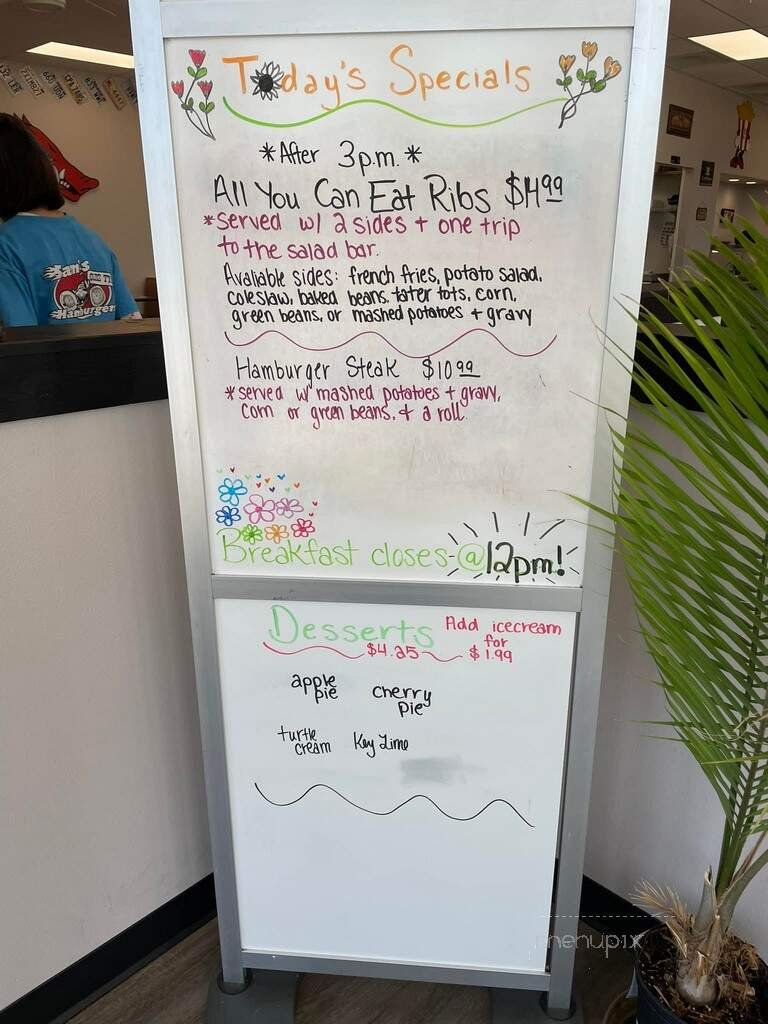 Today's Specials
*After 3p.m.*
All You Can Eat Ribs $14.99
*served w/ 2 sides + one trip
to the salad bar.
Avaliable sides: french fries, potato salad,
coleslaw, baked beans, tater tots, corn,
green beans, or mashed potatoes + gravy
Hamburger Steak $10.99
*served w/ mashed potatoes + gravy,
corn or green beans, & a roll.
Breakfast closes-@12pm!
Desserts
$4.25
Add icecream
for
$1.99
apple
pie
cherry
pie
turtle
cream
Key Lime
Sam's
Hamburgers
menupix